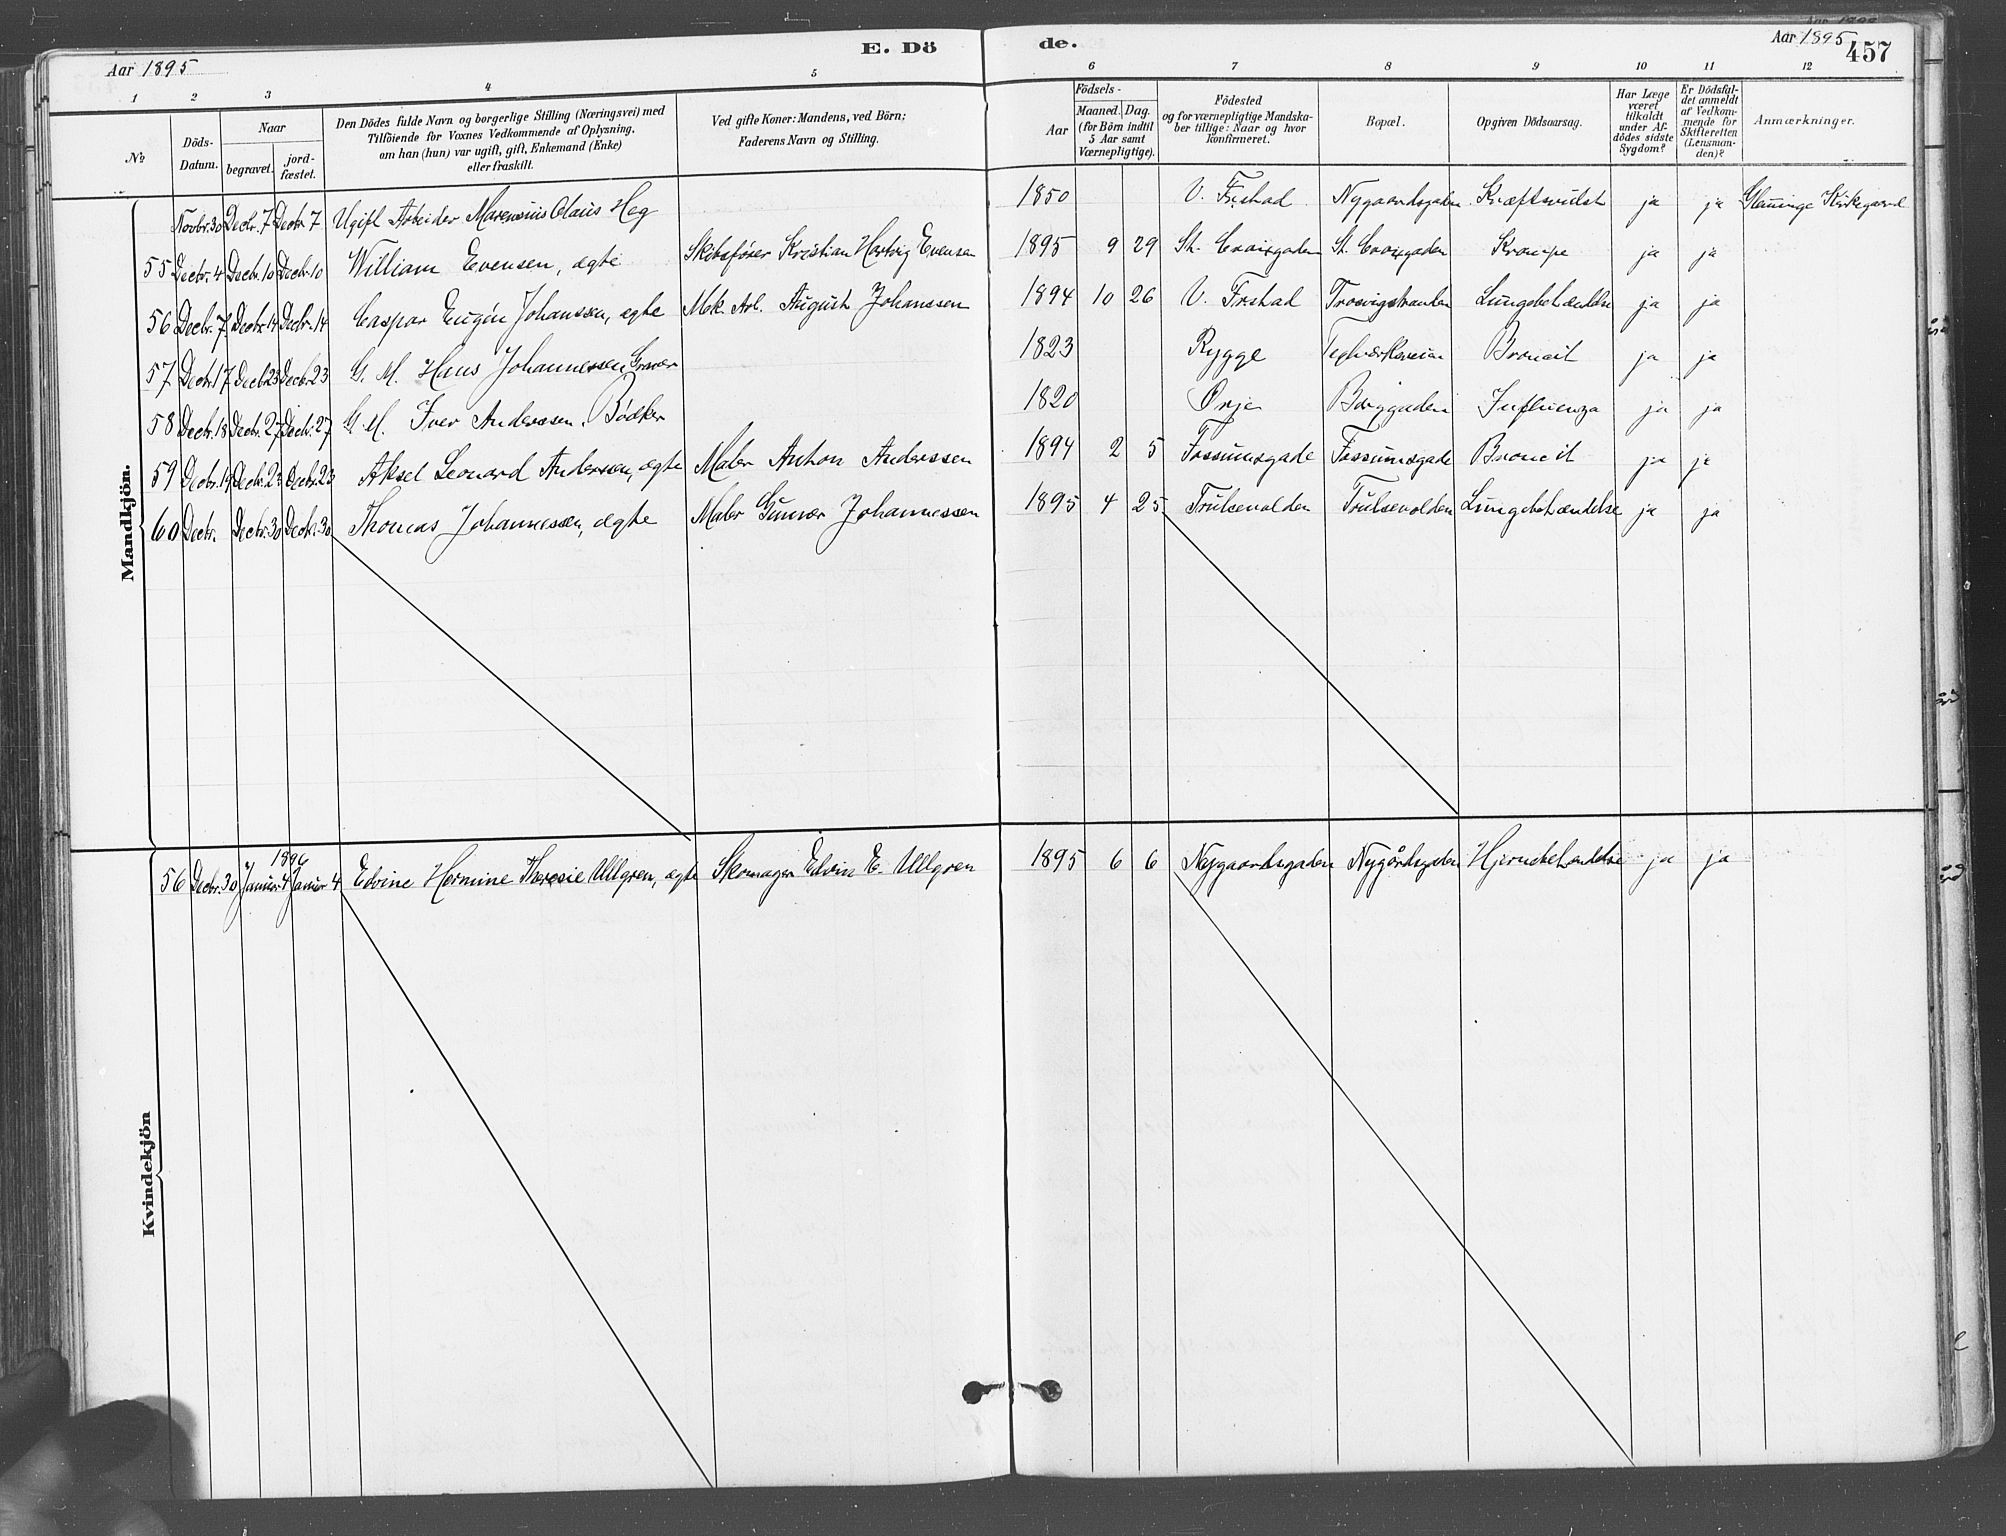 E. Dö de.
Aar 1895 Aar 1895 457
1 2 3 4 5 6 7 8 9 10 11 12
№
Döds-Datum.
Naar
begravet.
jord-fæstet.
Den Dödes fulde Navn og borgerlige Stilling (Næringsvei) med
Tilföiende for Voxnes Vedkommende af Oplysning,
om han (hun) var ugift, gift, Enkemand (Enke)
eller fraskilt.
Ved gifte Koner: Mandens, ved Börn;
Faderens Navn og Stilling.
Födsels-
Aar
Maaned. Dag.
(for Börn indtil
5 Aar samt
Værnepligtige).
Födested
og for værnepligtige Mandska-
ber tillige: Naar og hvor
konfirmeret.
Bopæl.
Opgiven Dödsaarsag.
Har Læge
været
tilkaldt
under Af-
dödes sidste
Sygdom?
Er Dödsfal-
det anmeldt
af Vedkom-
mende for
Skifteretten
(Lensman-
den)?
Anmærkninger.
Mandkjön.
Novbr. 30 Decbr. 7 Decbr 7 Ugift Arbeider Marensius Olaus Heg 1850 V. Frstad Nygaardsgaden Kræftsvulst ja ja Glemminge Kirkegaard
55 Decbr. 4 Decbr. 10 Decbr. 10 William Evensen, ægte Skibsfører Kristian Hartvig Evensen 1895 9 29 St. Croixgaden St. Croixgaden Krampe ja ja
56 Decbr. 7. Decbr. 14 Decbr. 14 Caspar Eugén Johanssen, ægte Mek. Arb. August Johanssen 1894 10 26 V. Frstad Trosvigstranden Lungebetændelse ja ja
57 Decbr. 17 Decbr. 23 Decbr. 23 G. M. Hans Johannessen Graver 1823 Rygge Teglværksveien Broncit ja ja
58 Decbr. 18 Decbr. 27 Decbr. 27 G. M. Iver Anderssen. Bødker 1820 Ørje Borggaden Influenza ja ja
59 Decbr. 19 Decbr. 23 Decbr. 23 Aksel Leonard Anderssen, ægte Maler Anton Anderssen 1894 2 5 Fossumsgade Fossumsgade Broncit ja ja
60 Decbr. Decbr. 30 Decbr. 30 Thomas Johannessen, ægte Maler Gunvar Johannessen 1895 4 25 Trulsevolden Trulsevolden Lungebetændelse ja ja
Kvindekjön
1896
56 Decbr. 30 Januar 4 Januar 4 Edvine Hermine Theresie Ullgren, ægte Skomager Edvin E. Ullgren 1895 6 6 Nygaardsgaden Nygårdsgaden Hjernebetændelse ja ja